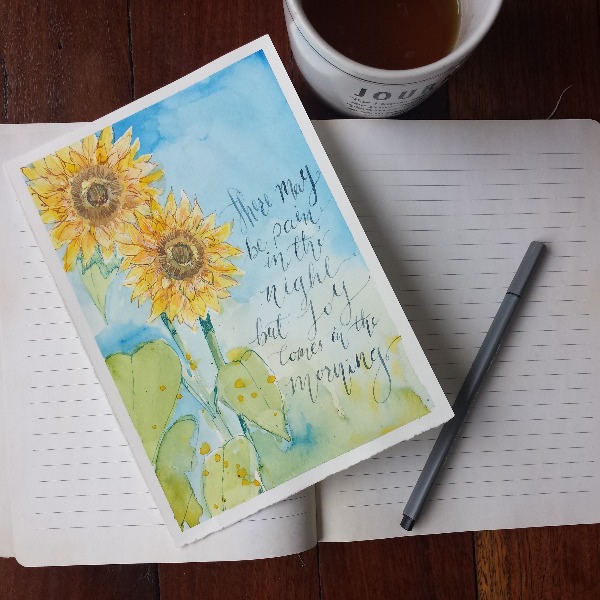 JOUR
there may
be pain
in the
night
but joy
comes in the
morning.